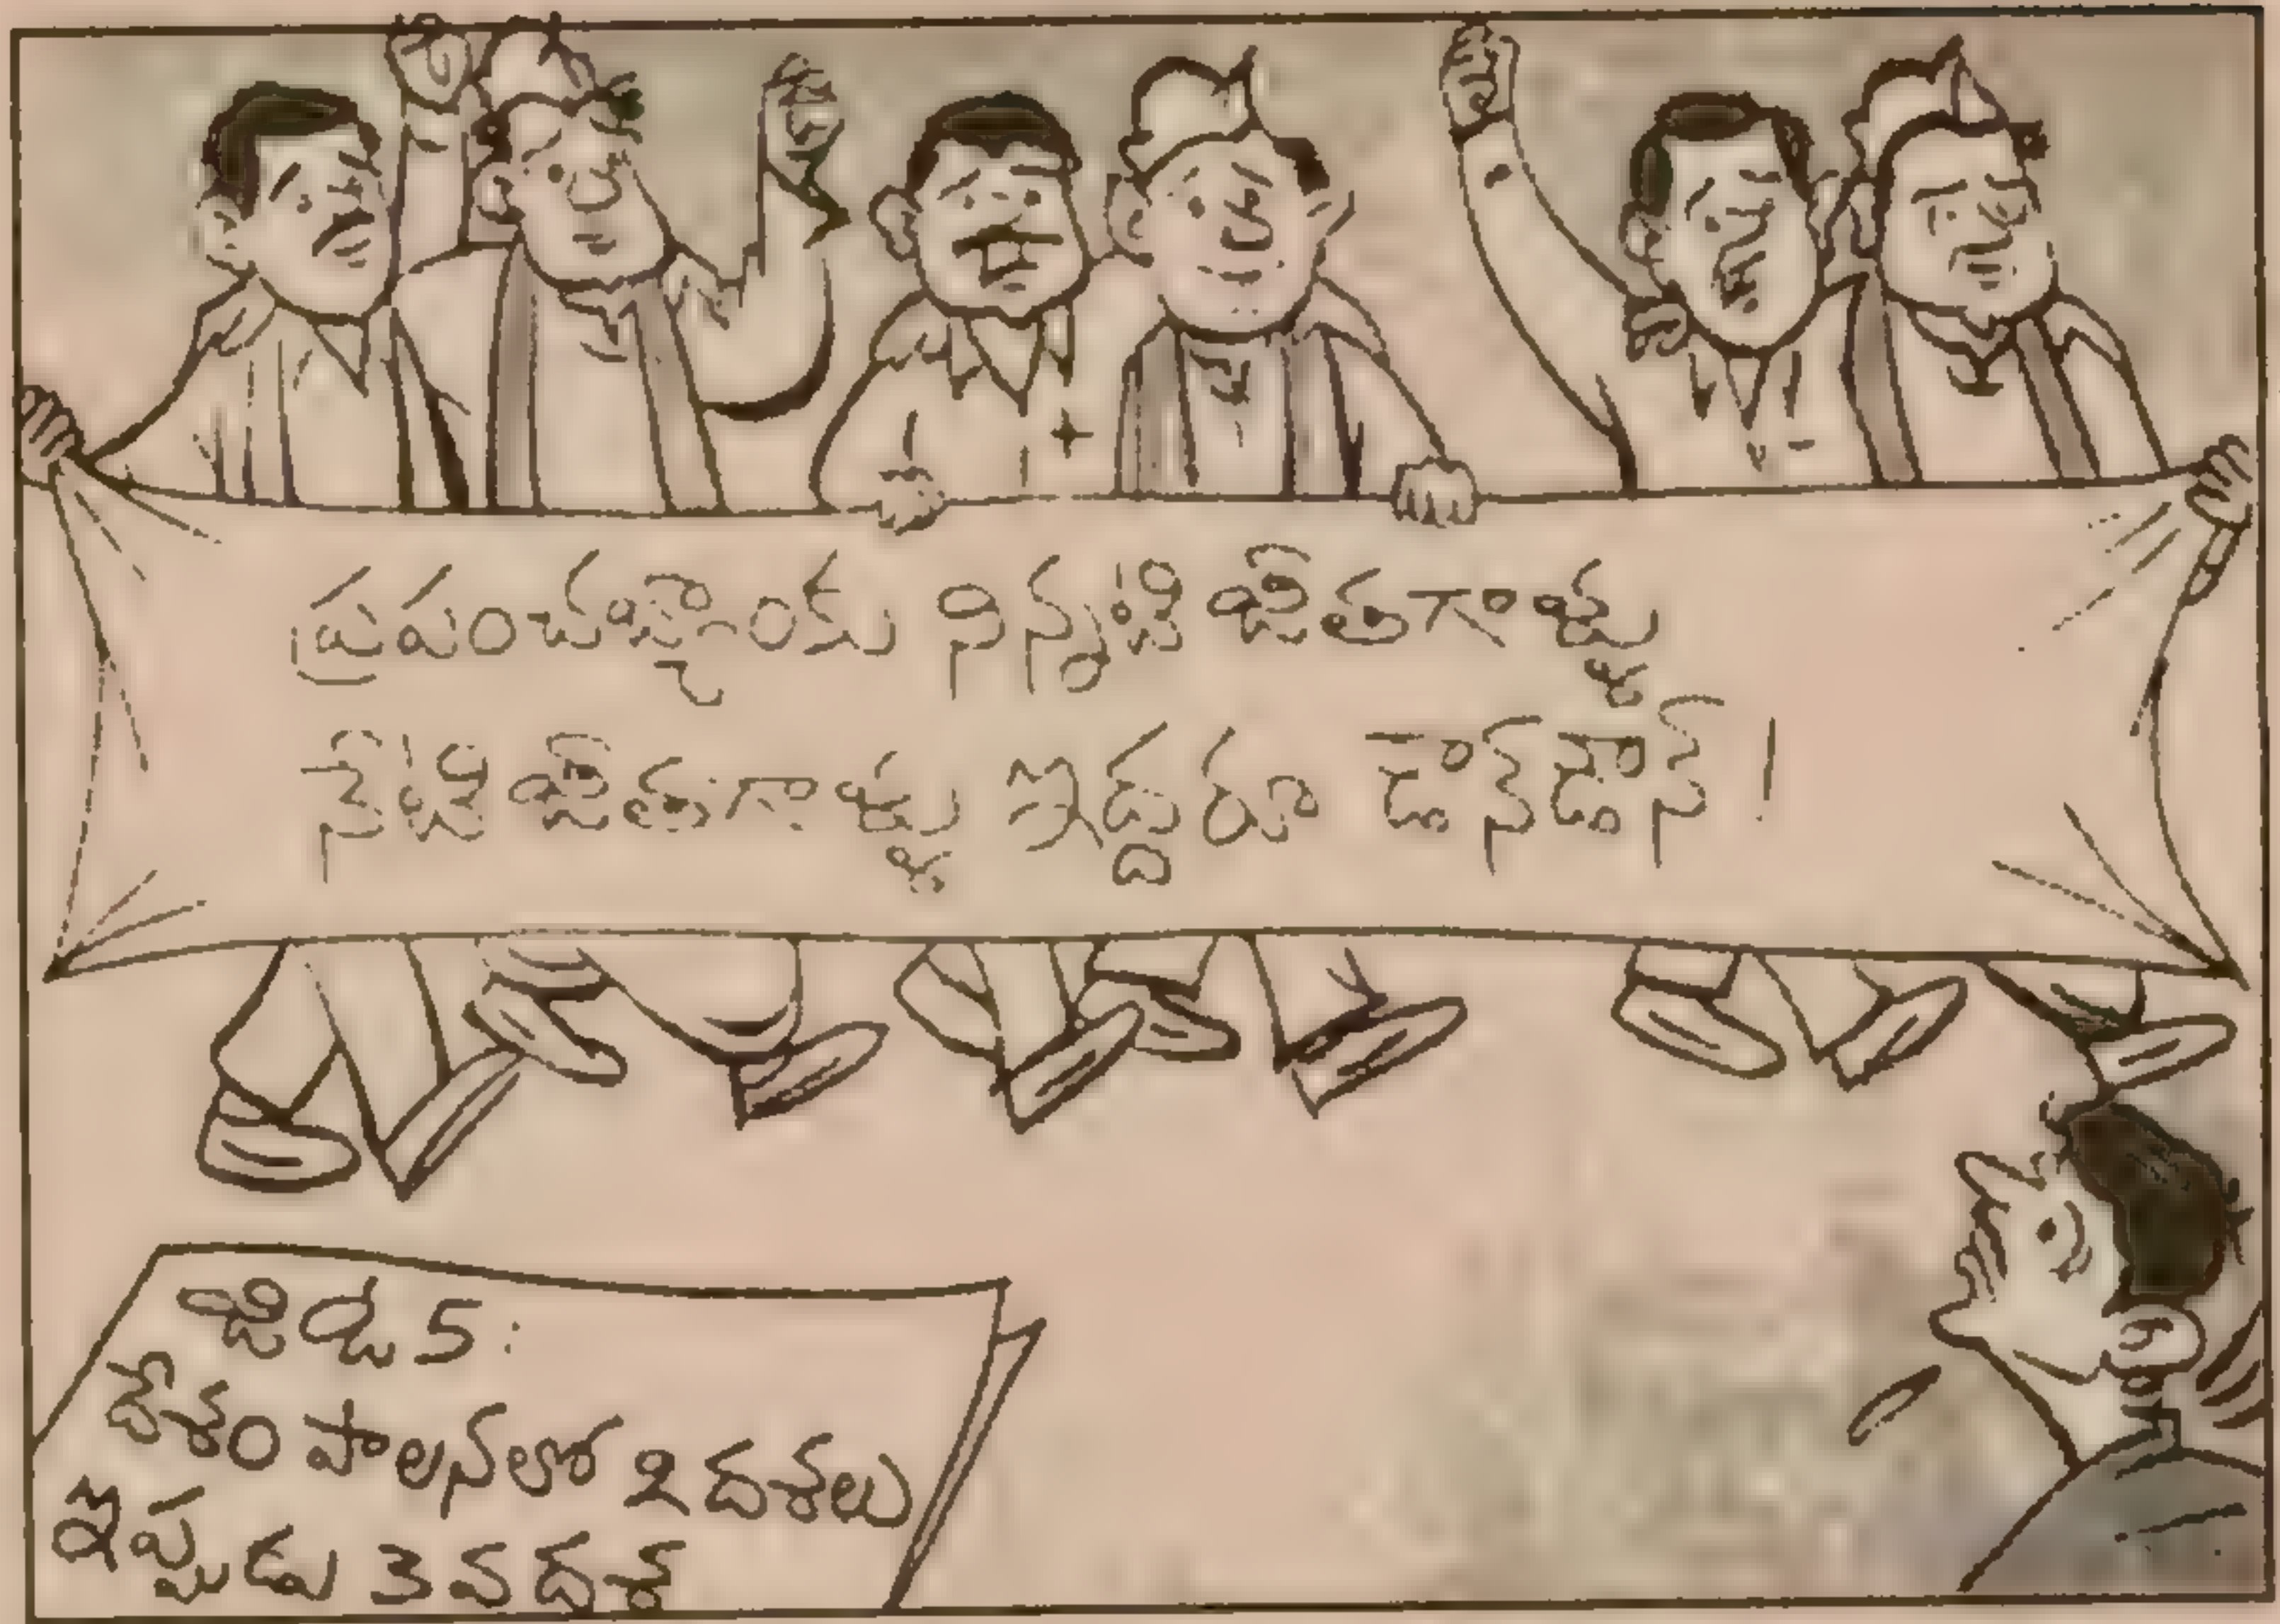 ప్రపంచబ్యాంకు నిన్నటి జీతగాళ్ళు
నేటి జీతగాళ్ళు ఇద్దరూ డౌన్‌డౌన్!
జి౹౹డి 5:
దేశం పాలనలో 2 దశలు
ఇప్పుడు 3 వ దశ